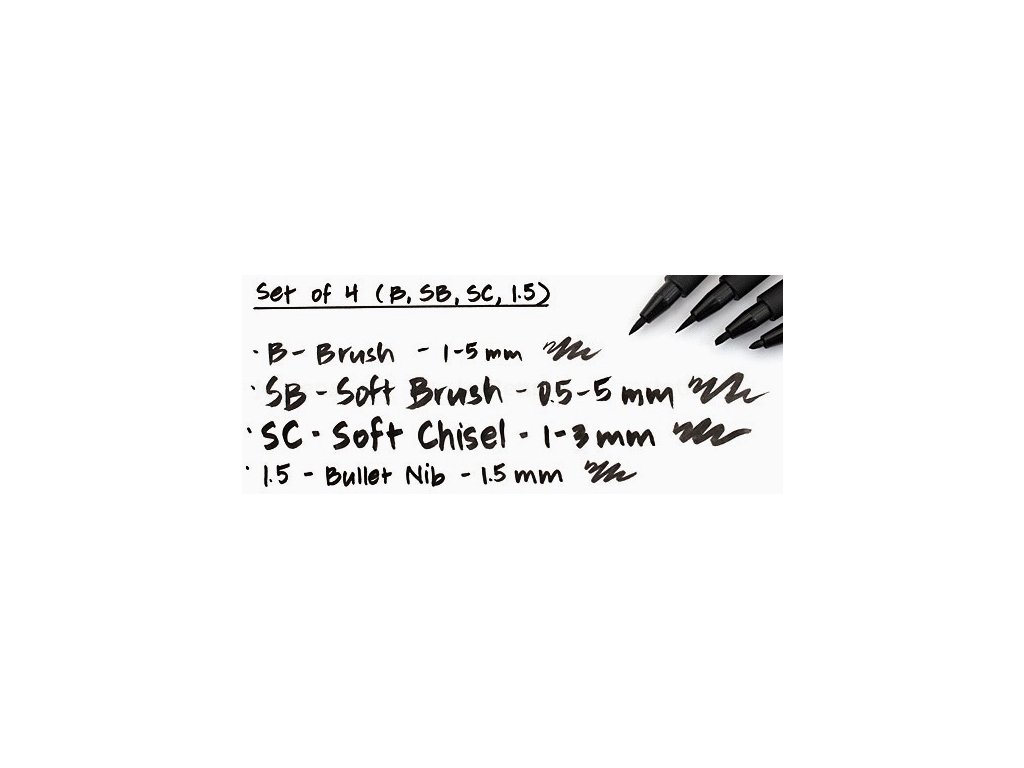 Set of 4 (B, SB, SC, 1.5)
· B - Brush - 1-5 mm
· SB - Soft Brush - 0.5-5 mm
· SC - Soft Chisel - 1-3 mm
· 1.5 - Bullet Nib - 1.5 mm